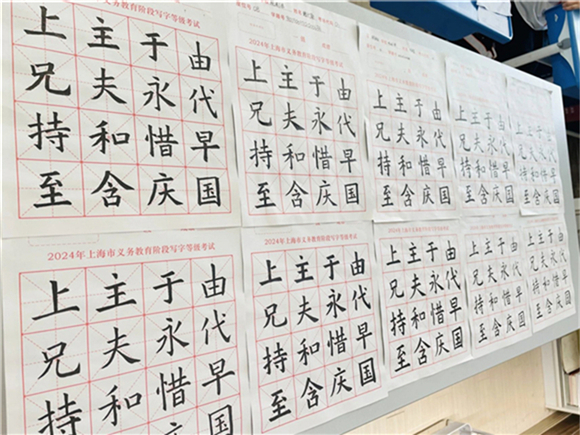 上海市义务教育阶段写字等级考试
上主于由
兄夫永代
持和惜早
至含庆国
2024年上海市义务教育阶段写字等级考试
上主于由
兄夫永代
持和惜早
至含庆国
上主于由
兄夫永代
持和惜早
至含庆国
上主于由
兄夫永代
持和惜早
至含庆国
上主于由
兄夫永代
持和惜早
至含庆国
2024年上海市义务教育阶段写字等级考试
上主于由
兄夫永代
持和惜早
2024年上海市义务教育阶段写字等级考试
上主于由
兄夫永代
持和惜早
至含庆国
上主于由
兄夫永代
持和惜早
至含庆国
上主于由
兄夫永代
持和惜早
至含庆国
上主于由
兄夫永代
持和惜早
至含庆国